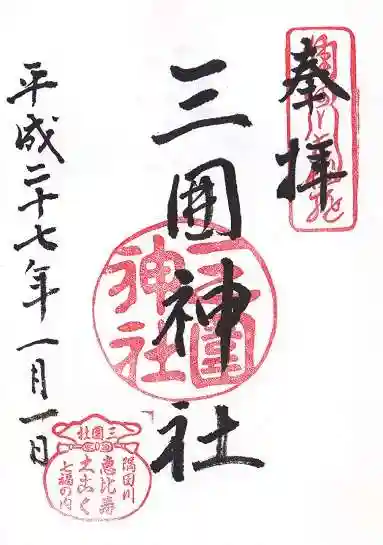 奉拝
三囲神社
三囲神社
平成二十七年一月一日
三囲社
隅田川
恵比寿
大こく
七福の内